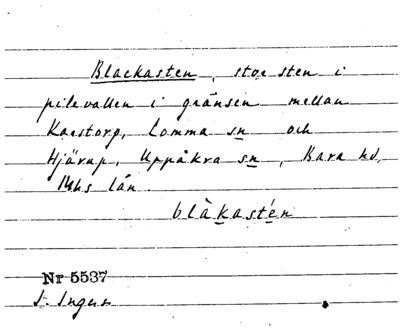 Blackasten, stor sten i
pilevallen i gränsen mellan
Karstorp, Lomma sn och
Hjärup, Uppåkra sn, Bara hd,
Mhs län.
blàkastén
Nr 5537
S. Ingers